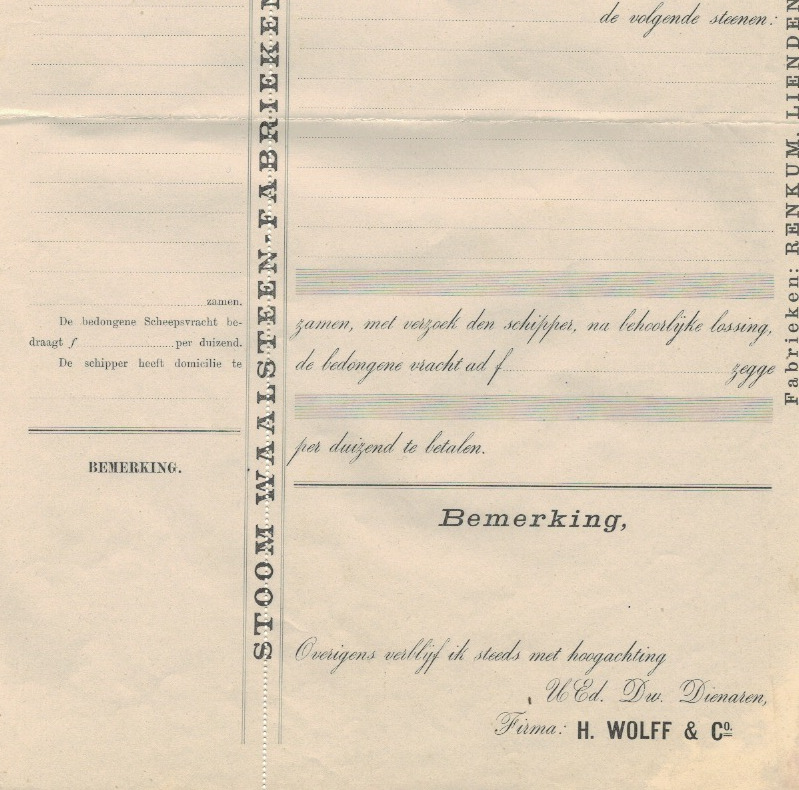 zamen.
De bedongene Scheepsvracht be-
draagt f per duizend.
De schipper heeft domicilie te
BEMERKING.
STOOM WAALSTEEN-FABRIEKEN
de volgende steenen:
zamen, met verzoek den schipper, na behoorlijke lossing,
de bedongene vracht ad f zegge
per duizend te betalen.
Bemerking,
Overigens verblijf ik steeds met hoogachting
UEd. Dw. Dienaren,
Firma: H. WOLFF & Co.
Fabrieken: RENKUM, LIENDEN